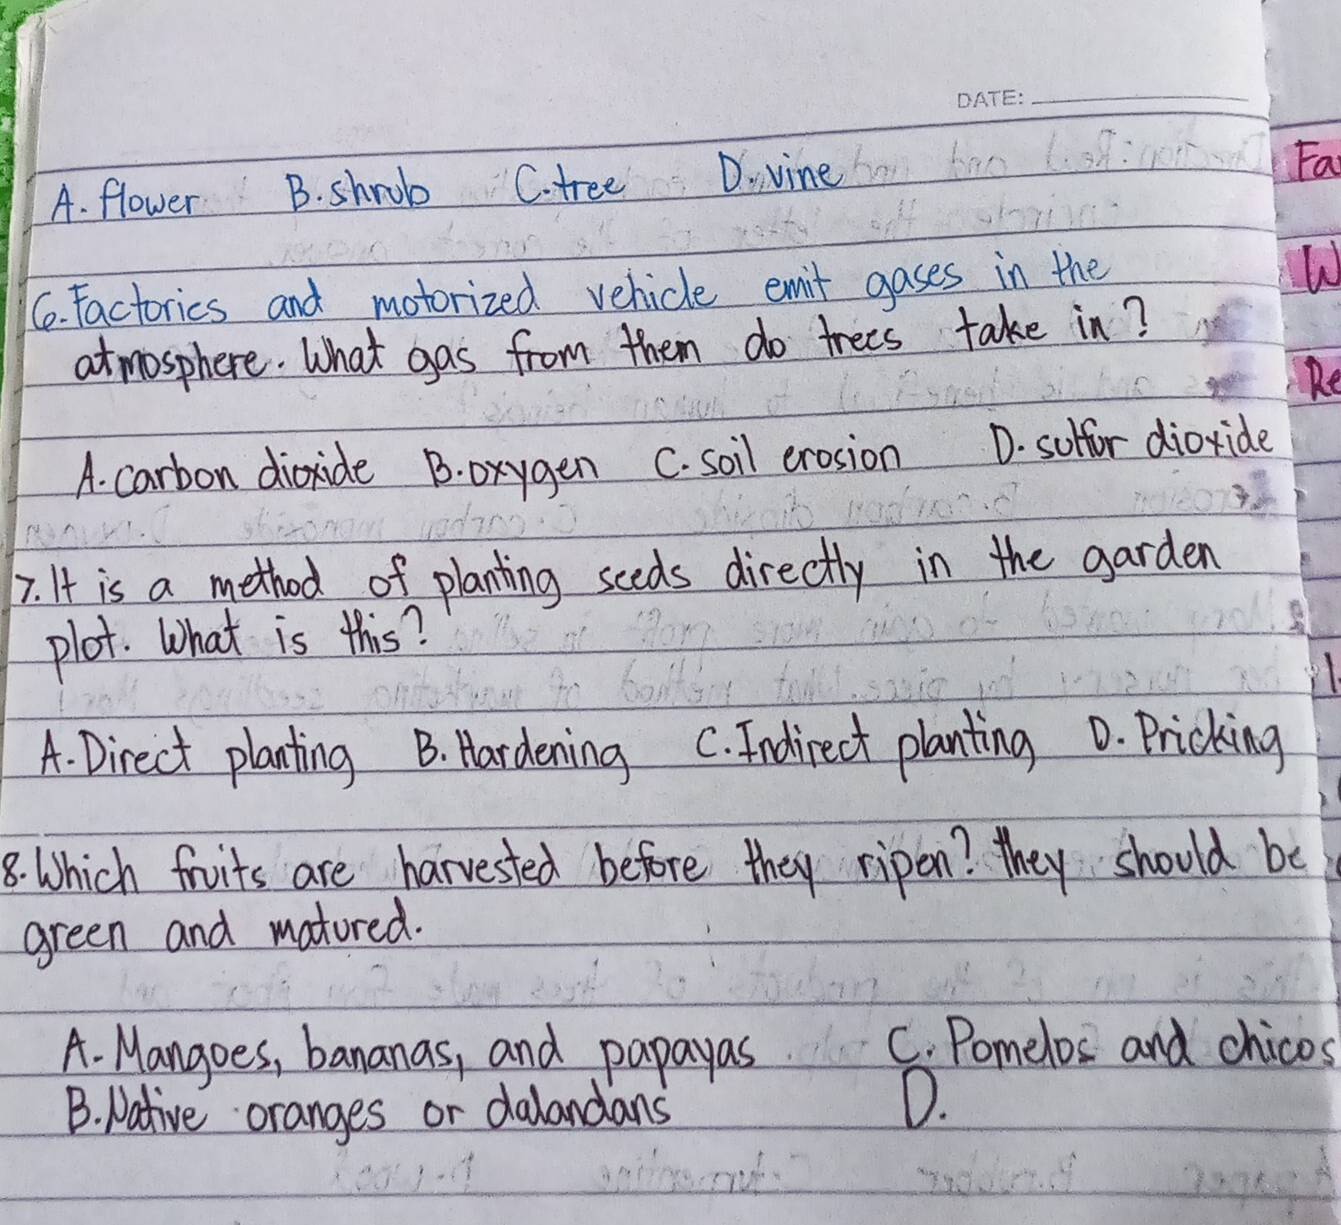 DATE:
A. flower B. shrub C. tree D. vine
6. Factories and motorized vehicle emit gases in the
atmosphere. What gas from them do trees take in?
A. carbon dioxide B. oxygen C. soil erosion D. sulfur dioxide
7. It is a method of planting seeds directly in the garden
plot. What is this?
A. Direct planting B. Hardening C. Indirect planting D. Pricking
8. Which fruits are harvested before they ripen? they should be
green and matured.
A. Mangoes, bananas, and papayas C. Pomelos and chicos
B. Native oranges or dalandans D.
Fa
W
Re